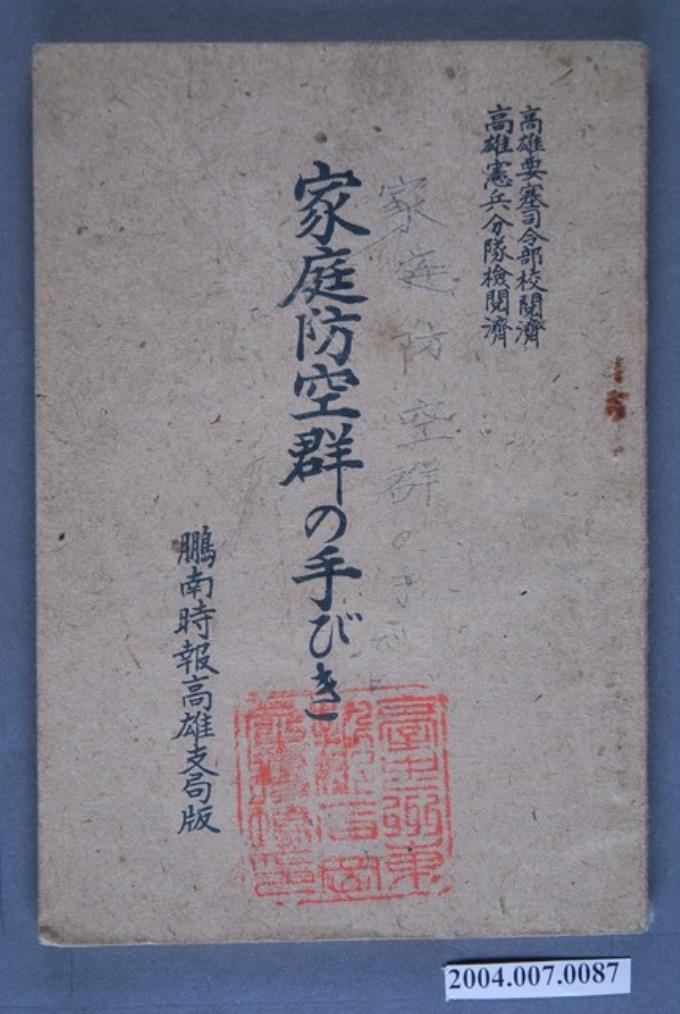 高雄要塞司令部校閱濟
高雄憲兵分隊檢閱濟
家庭防空群の手びき
家庭防空群の手び
鵬南時報高雄支局版
2004.007.0087